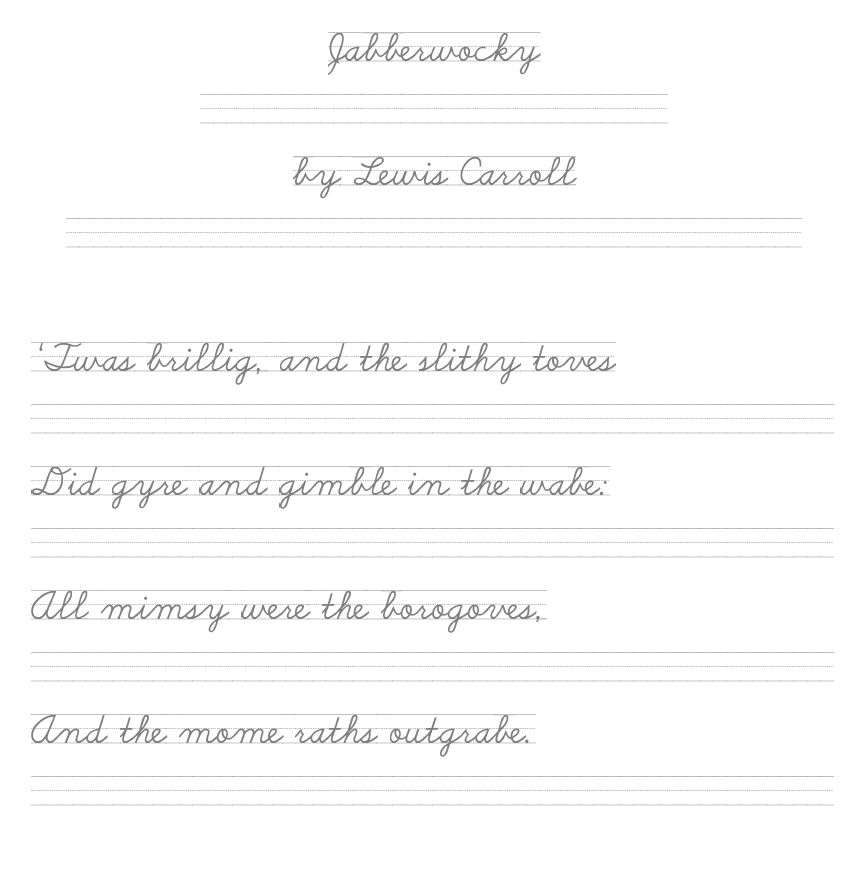 Jabberwocky
by Lewis Carroll
‘Twas brillig, and the slithy toves
Did gyre and gimble in the wabe:
All mimsy were the borogoves,
And the mome raths outgrabe.